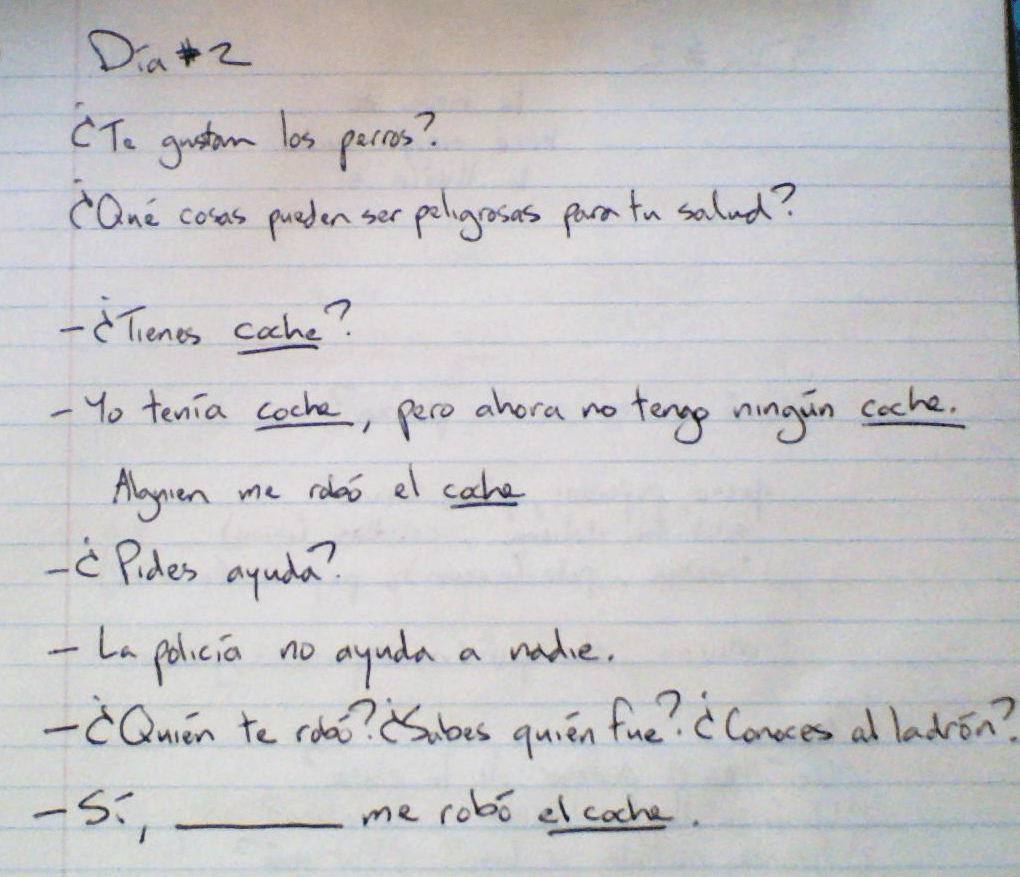 Día #2
¿Te gustan los perros?
¿Qué cosas pueden ser peligrosas para tu salud?
- ¿Tienes coche?
- Yo tenía coche, pero ahora no tengo ningún coche.
Alguien me robó el coche
- ¿Pides ayuda?
- La policía no ayuda a nadie.
- ¿Quién te robó? ¿Sabes quién fue? ¿Conoces al ladrón?
- Sí, ________ me robó el coche.